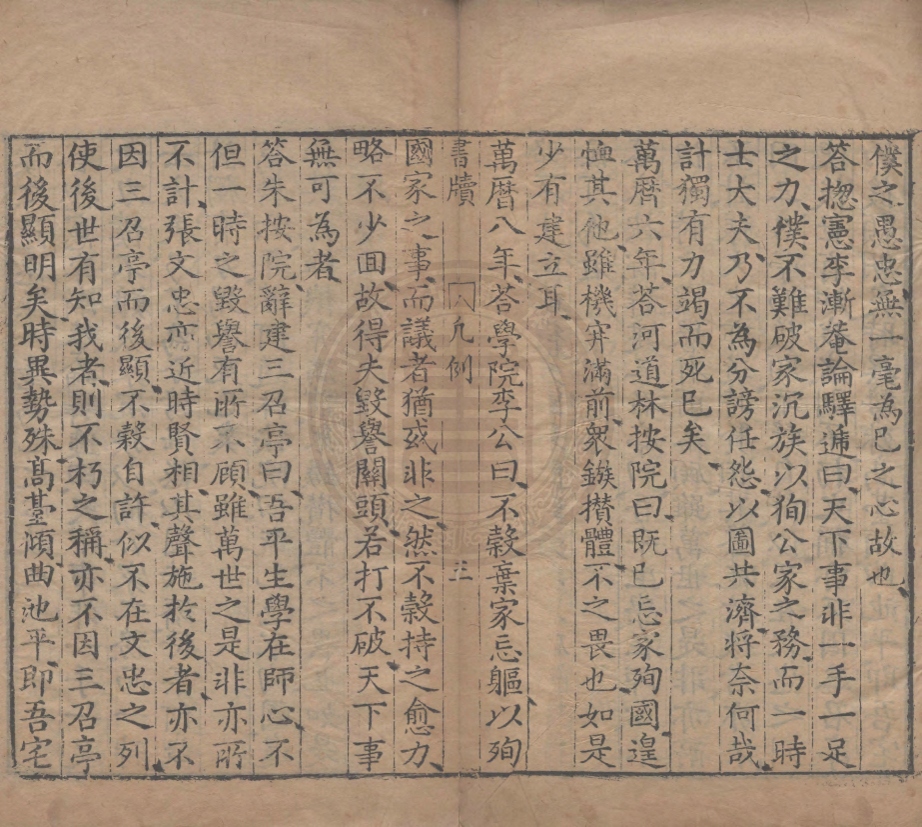 僕之愚忠無一毫為已之心故也
答揔憲李漸菴論驛逓曰天下事非一手一足
之力僕不難破家沉族以狥公家之務而一時
士大夫乃不為分謗任怨以圖共濟將奈何哉
計獨有力竭而死巳矣
萬暦六年荅河道林按院曰既巳忘家殉國遑
恤其他雖機穽滿前衆鏃攅體不之畏也如是
少有建立耳
萬暦八年荅學院李公曰不榖棄家忘軀以殉
書牘 凡例 三
國家之事而議者猶或非之然不榖持之愈力
略不少囬故得失毀譽關頭若打不破天下事
無可為者
答朱按院辭建三召亭曰吾平生學在師心不
但一時之毀譽有所不顧雖萬世之是非亦所
不計張文忠亦近時賢相其聲施於後者亦不
因三召亭而後顯不榖自許似不在文忠之列
使後世有知我者則不朽之稱亦不因三召亭
而後顯明矣時異勢殊髙臺傾曲池平即吾宅